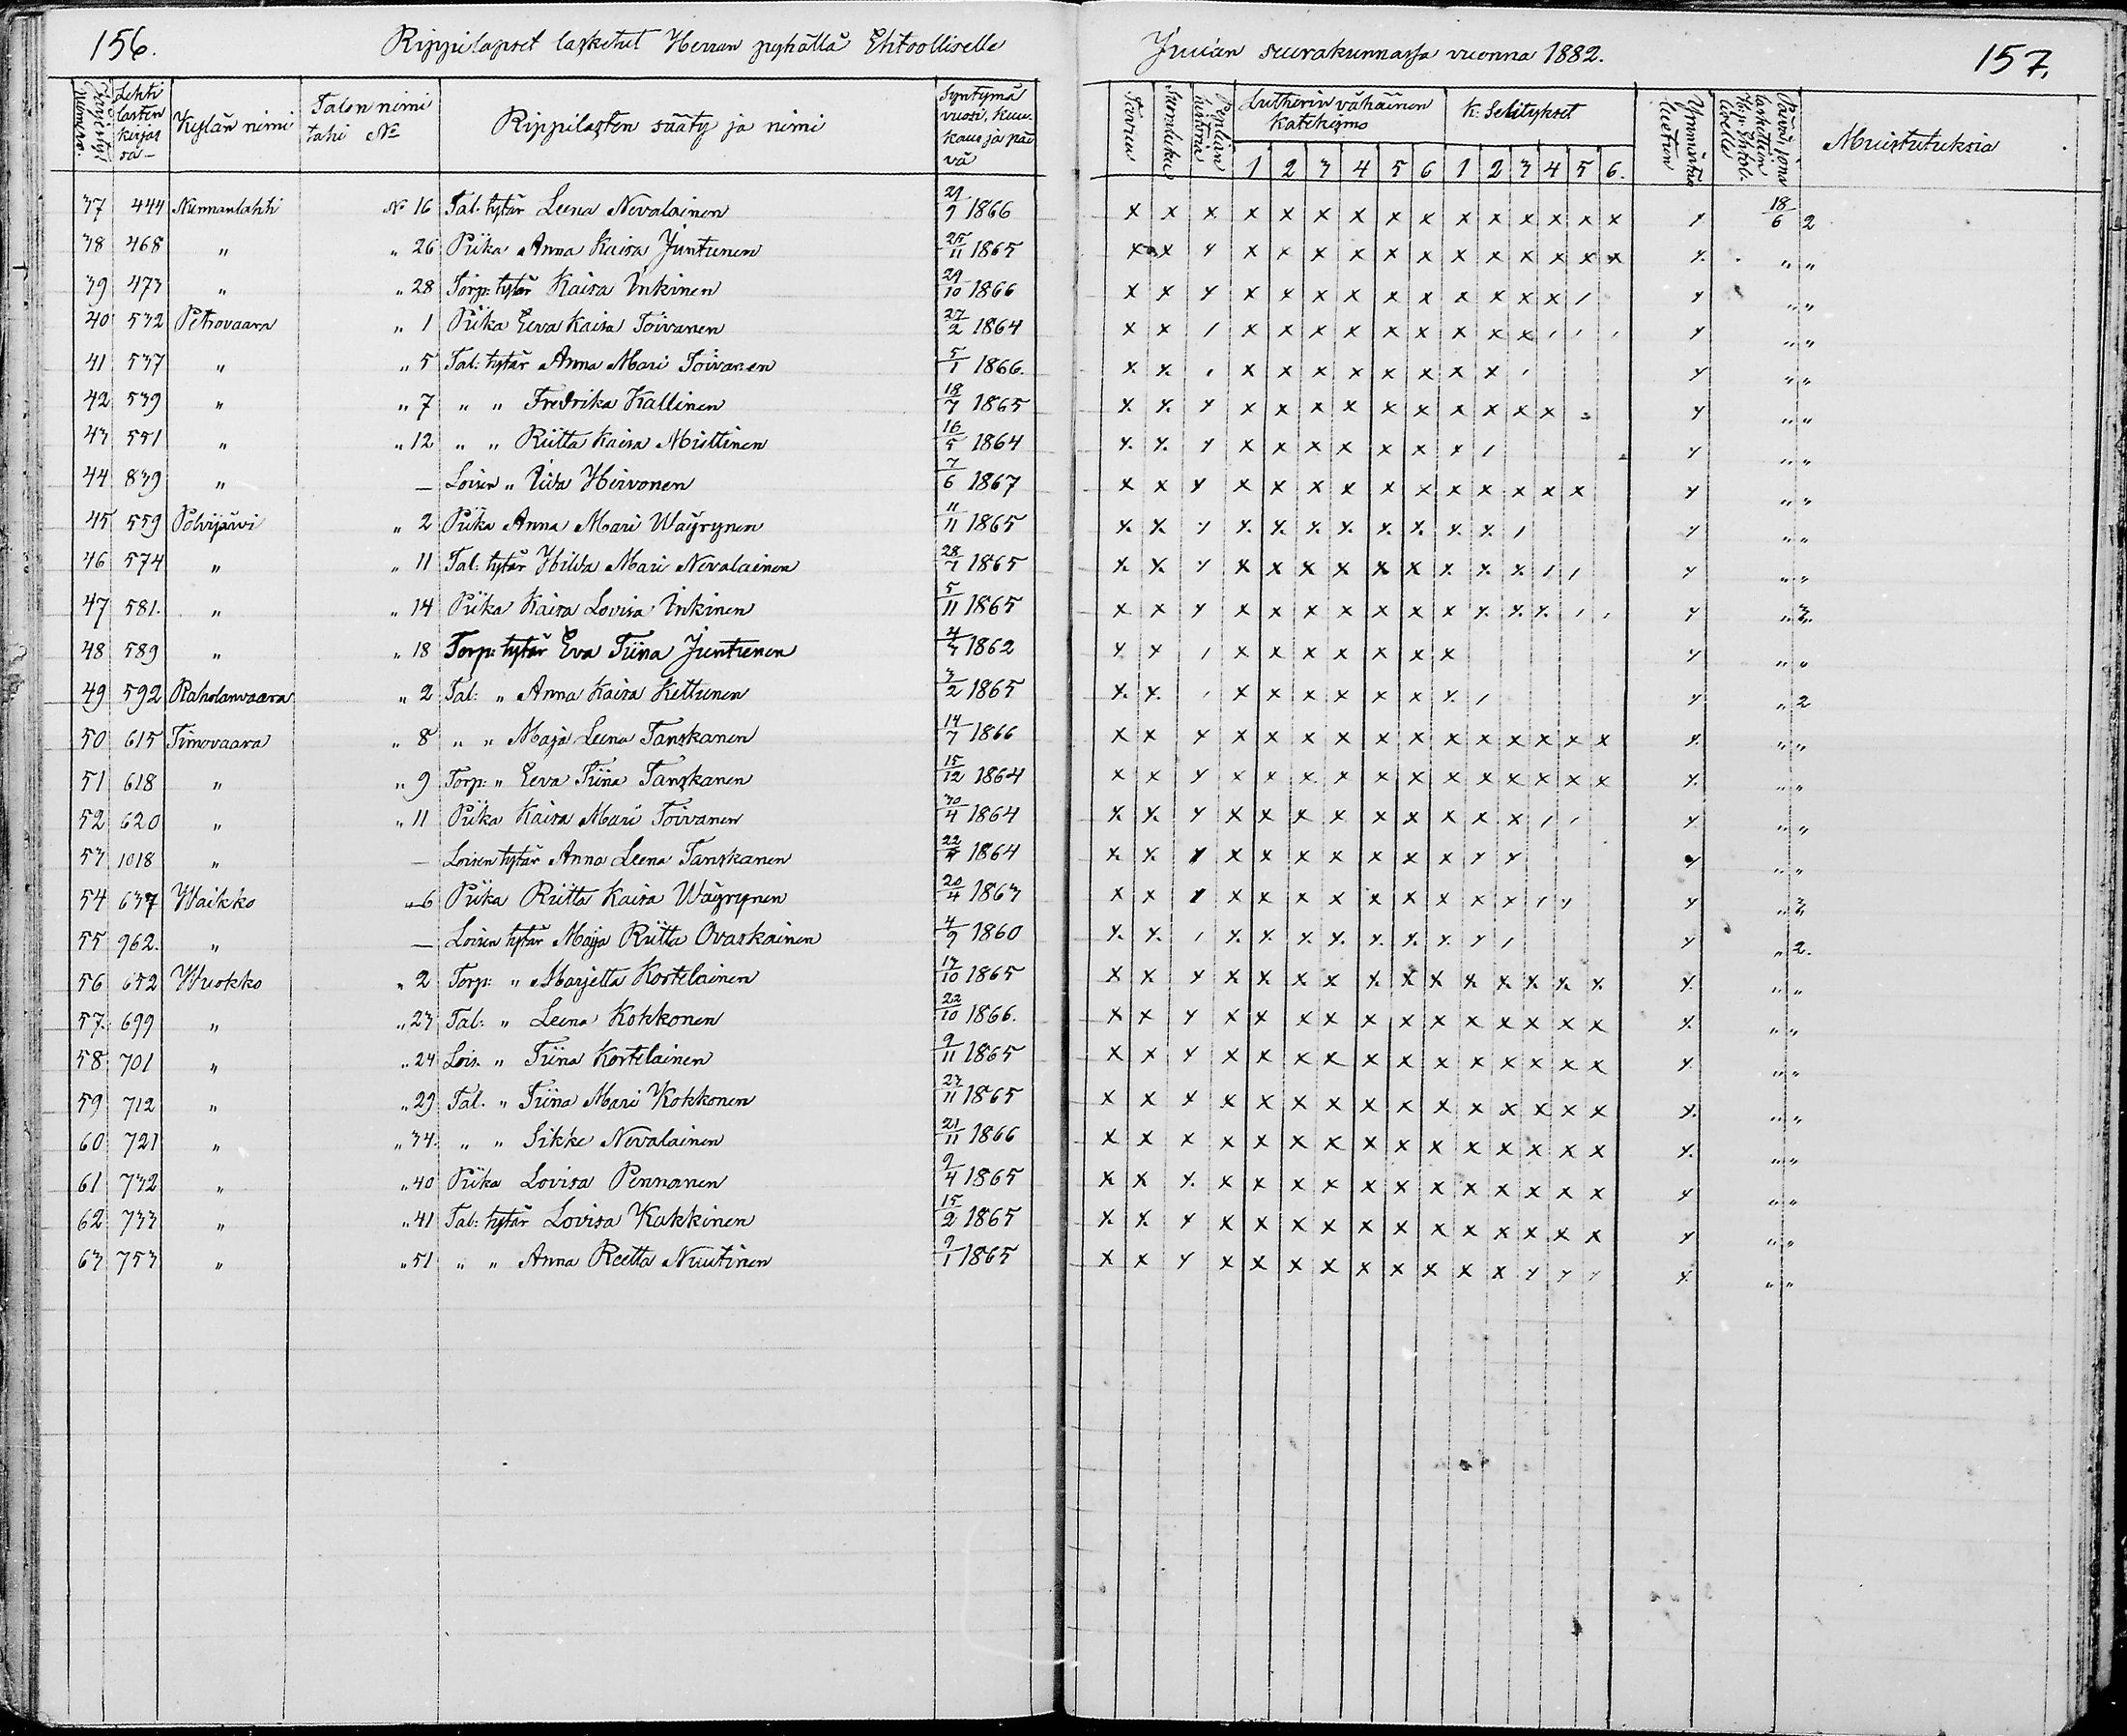 156. Rippilapset lasketut Herran pyhällä Ehtoolliselle Juuan seurakunnassa vuonna 1882. 157.
Lehti lasten kirjas sa
Kylän nimi
Talon nimi tahi No
Rippilasten sääty ja nimi
Syntymä vuosi, kuukaus ja päivä
Sisäluku
Piplian historia
Lutherin vähäinen Katekismo
K: Selitykset
Ymmärrös
Päivä, jona laskettiin
Muistutuksia
1 2 3 4 5 6 1 2 3 4 5 6.
37 444 Nunnanlahti No 16 Tal. tytär Leena Nevalainen 29/9 1866 x x x x x x x x x x x x x x x 18/6 2
38 468 " " 26 Piika Anna Kaisa Juntunen 25/11 1865 x x x x x x x x x x x x x x x " "
39 473 " " 28 Torp: tytär Kaisa Inkinen 29/10 1866 x x x x x x x x x x x x x / " "
40 532 Petrovaara " 1 Piika Eeva Kaisa Toivanen 27/2 1864 x x / x x x x x x x x x / / / " "
41 537 " " 5 Tal: tytär Anna Mari Toivanen 5/1 1866. x x / x x x x x x x x / " "
42 539 " " 7 " " Fredrika Kallinen 18/7 1865 " "
43 551 " " 12 " " Riitta Kaisa Misttinen 16/5 1864 " "
44 839 " — Loisen " Iida Hirvonen 7/6 1867 " "
45 559 Polvijärvi " 2 Piika Anna Mari Wäyrynen 11/11 1865 " "
46 574 " " 11 Tal: tytär Hilda Mari Nevalainen 28/7 1865 " "
47 581. " " 14 Piika Kaisa Lovisa Inkinen 5/11 1865 " 3.
48 589 " " 18 Torp: tytär Eva Tiina Juntunen 4/7 1862 " "
49 592 Raholanvaara " 2 Tal: " Anna Kaisa Kettunen 3/2 1865 " 2
50 615 Timovaara " 8 " " Maja Leena Tanskanen 14/7 1866 " "
51 618 " " 9 Torp: " Eeva Tiina Tanskanen 15/12 1864 " "
52 620 " " 11 Piika Kaisa Mari Toivanen 30/4 1864 " "
53 1018 " — Loisen tytär Anna Leena Tanskanen 22/4 1864 " "
54 637 Waikko " 6 Piika Riitta Kaisa Wäyrynen 20/4 1863 " 3
55 962. " — Loisen tytär Maija Riitta Ovaskainen 4/9 1860 " 2.
56 652 Wuokko " 2 Torp: " Marjetta Kortelainen 17/10 1865 " "
57. 699 " " 23 Tal: " Leena Kokkonen 22/10 1866. " "
58 701 " " 24 Lois. " Tiina Kortelainen 9/11 1865 " "
59 712 " " 29 Tal. " Tiina Mari Kokkonen 23/11 1865 " "
60 721 " " 34. " " Sikke Nevalainen 21/11 1866 " "
61 732 " " 40 Piika Lovisa Pennanen 9/4 1865 " "
62 733 " " 41 Tal: tytär Lovisa Kakkinen 15/2 1865 " "
63 753 " " 51 " " Anna Reetta Nuutinen 9/1 1865 " "